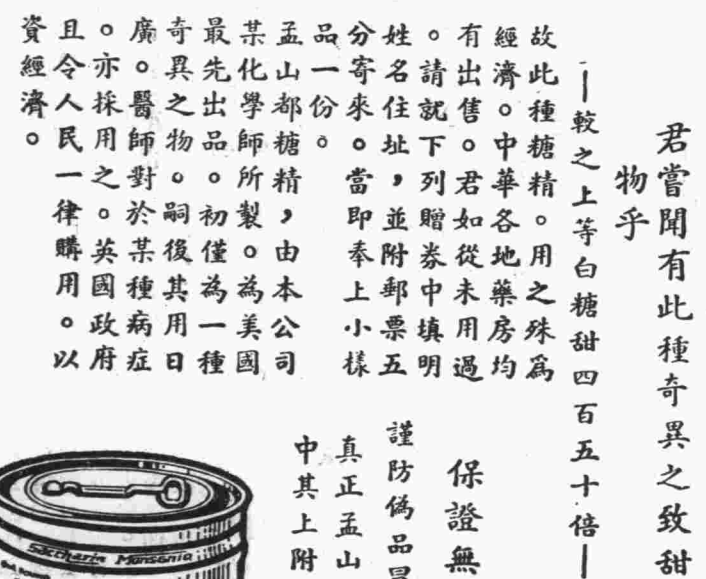 君嘗聞有此種奇異之致甜
物乎
—較之上等白糖甜四百五十倍—
故此種糖精。用之殊爲
經濟。中華各地藥房均
有出售。君如從未用過
。請就下列贈券中填明
姓名住址,並附郵票五
分寄來。當即奉上小樣
品一份。
孟山都糖精,由本公司
某化學師所製。為美國
最先出品。初僅為一種
奇異之物。嗣後其用日
廣。醫師對於某種病症
。亦採用之。英國政府
且令人民一律購用。以
資經濟。
保證無
謹防僞品
真正孟山
中其上附
Saccharin Monsanto